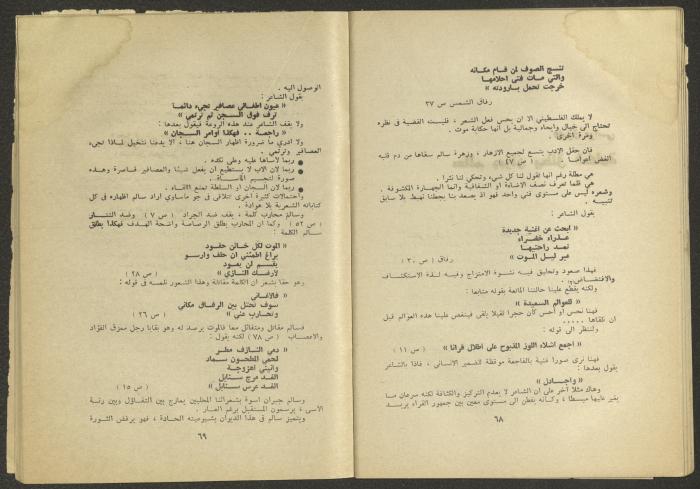 تنسج الصوف لمن قام مكانه
والتي مات فتى احلامها
خرجت تحمل بارودته »
رفاق الشمس ص ٣٧
لا يملك الفلسطيني الا ان يحس فعل الشعر ، فليست القضية في نظره
تحتاج الى خيال وايحاء وجمالية بل أنها حكاية موت .
ومرة اخرى
فان حقل الادب يتسع لجميع الازهار ، وزهرة سالم سقاها من دم قلبه
الغض ( ص ٤٧ ) .
هي مطلة رغم انها تقول لنا كل شيء وتحكي لنا نثرا .
هي قلما تعرف نصف الاضاءة او الشفافية وانما الجهارة المكشوفة .
وشعره ليس على مستوى فني واحد فهو اذ يصعد بنا يجعلنا نهبط بلا سابق
تنبيه .
يقول الشاعر :
« ابحث عن اغنية جديدة
عذراء خضراء
تمد راحتيها
عبر ليل الموت »
رفاق ( ص ٣٠ )
فهذا صعود وتحليق فيه نشوة الامتزاج وفيه لذة الاستكشاف
والاقتضاض .
ولكنه يقطع علينا حالتنا الماتعة بقوله متابعا :
« للعوالم السعيدة »
فهنا نحس او أحس كأن حجرا ثقيلا يلقى فينغص علينا هذه العوالم قبل
ان نلقاها .....
ولننظر الى قوله :
« اجمع اشلاء اللوز المذبوح على اطلال قرانا » ( ص ١١ )
فهنا نرى صورا فنية بالفاجعة موقظة للضمير الانساني ، فاذا بالشاعر
يقول بعدها :
« واجادل »
وهاك مثلا آخر على ان الشاعر لا يعدم التركيز والكثافة لكنه سرعان ما
يغير عليها مبسطا ، وكأنه يفطن الى مستوى معين بين جمهور القراء يريد
٦٨
الوصول اليه .
يقول الشاعر :
« عيون اطفالي عصافير تجيء دائما
ترف فوق السجن ثم ترتمي »
ولا يقف الشاعر عند هذه الروعة فيقول بعدها :
« راجمة .. فهكذا أوامر السجان »
ولا ادري ما ضرورة اظهار السجان هنا ، الا يدعنا نتخيل لماذا تجيء
العصافير وترتمي .
● ربما لأساها عليه وعلى نكده .
● ربما لان الاب لا يستطيع ان يفعل شيئا والعصافير قاصرة وهذه
صورة لتجسيم المأساة .
● ربما لان السجان او السلطة تمنع اللقاء .
واحتمالات كثيرة أخرى تتلاقى في جو مأساوي اراد سالم اظهاره في كل
كتاباته الشعرية بلا هوادة .
وسالم محارب كلمة ، يقف ضد الجراد ( ص ٧ ) وضد التتار
( ص ٥٢ ) وكما ان المحارب يطلق الرصاصة واضحة الهدف فهكذا يطلق
سالم الكلمة :
« الموت لكل خائن حقود
يراع اطمئني ان خلف وارسو
بقسم لن يعود
لأرضك النازي » ( ص ٢٨ )
وهو حقا يشعر ان الكلمة مقاتلة وهذا الشعور نلمسه في قوله :
« فالاغاني
سوف تحتل بين الرفاق مكاني
وتحارب عني » ( ص ٢٦ )
فسالم مقاتل ومتفائل معا فالموت يرصد له وهو يقابا رجل ممزق الفؤاد
والاعصاب ( ص ٧٨ ) لكنه يقول :
« دمي النازف مطر
لحمي المطحون سماد
وانيني اهزوجة
الغد مرج سنابل
الغد عرس سنابل » ( ص ١٥ )
وسالم جبران اسوة بشعرائنا المحليين يمازج بين التفاؤل وبين رنة
الأسى ، يرسمون المستقبل برغم العار .
ويتميز سالم في هذا الديوان بشيوعيته الحادة ، فهو يرفض الثورة
٦٩